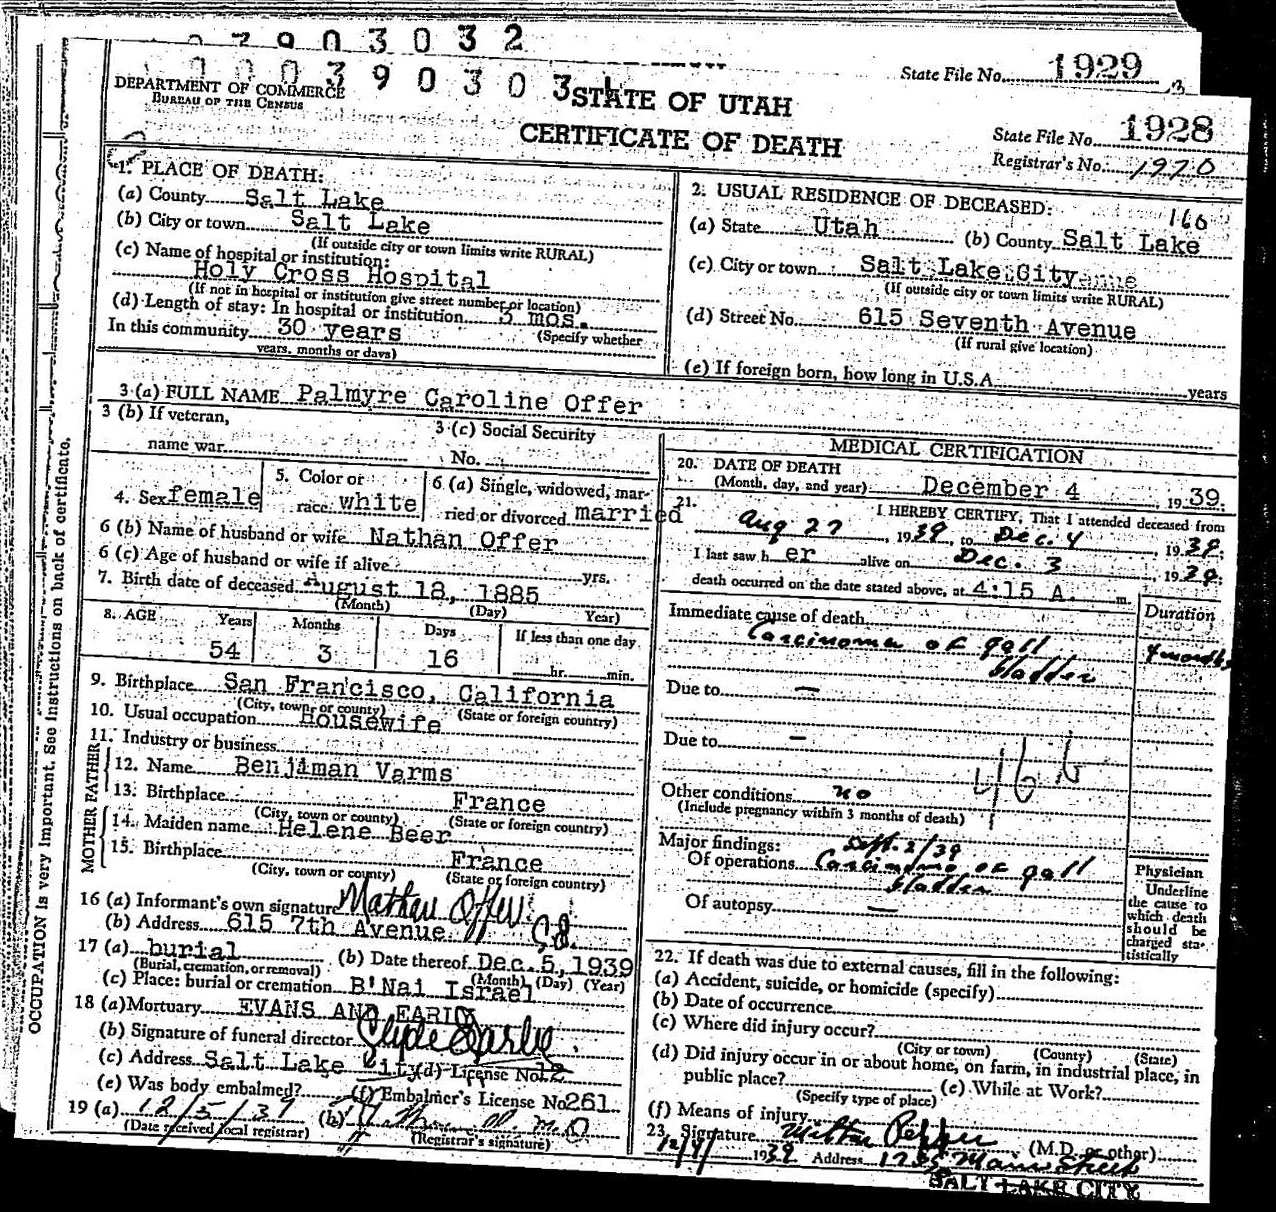 3903032
State File No. 1929
0003903031
DEPARTMENT OF COMMERCE
BUREAU OF THE CENSUS
STATE OF UTAH
CERTIFICATE OF DEATH
State File No. 1928
Registrar's No. 1970
1. PLACE OF DEATH:
(a) County Salt Lake
(b) City or town Salt Lake
(If outside city or town limits write RURAL)
(c) Name of hospital or institution:
Holy Cross Hospital
(If not in hospital or institution give street number or location)
(d) Length of stay: In hospital or institution 3 mos.
In this community 30 years (Specify whether
years, months or days)
2. USUAL RESIDENCE OF DECEASED:
160
(a) State Utah (b) County Salt Lake
(c) City or town Salt Lake City
(If outside city or town limits write RURAL)
(d) Street No. 615 Seventh Avenue
(If rural give location)
(e) If foreign born, how long in U.S.A. years
3 (a) FULL NAME Palmyre Caroline Offer
3 (b) If veteran,
name war
3 (c) Social Security
No.
4. Sex female
5. Color or
race white
6 (a) Single, widowed, mar-
ried or divorced married
6 (b) Name of husband or wife Nathan Offer
6 (c) Age of husband or wife if alive yrs.
7. Birth date of deceased August 18, 1885
(Month) (Day) Year)
8. AGE Years Months Days If less than one day
54 3 16 hr. min.
9. Birthplace San Francisco, California
(City, town or county) (State or foreign country)
10. Usual occupation Housewife
11. Industry or business
FATHER
12. Name Benjiman Varms
13. Birthplace France
(City, town or county) (State or foreign country)
MOTHER
14. Maiden name Helene Beer
15. Birthplace France
(City, town or county) (State or foreign country)
16 (a) Informant's own signature Nathan Offer
(b) Address 615 7th Avenue
17 (a) burial (b) Date thereof Dec. 5, 1939
(Burial, cremation, or removal) (Month) (Day) (Year)
(c) Place: burial or cremation B'Nai Israel
18 (a) Mortuary EVANS AND EARLY
(b) Signature of funeral director Clyde Early
(c) Address Salt Lake City (d) License No. 12
(e) Was body embalmed? (f) Embalmer's License No 261
19 (a) 12/5/39 (b) M.D.
(Date received local registrar) (Registrar's signature)
MEDICAL CERTIFICATION
20. DATE OF DEATH
(Month, day, and year) December 4, 1939.
21. I HEREBY CERTIFY, That I attended deceased from
Aug 27, 1939, to Dec. 4, 1939;
I last saw h er alive on Dec. 3, 1939;
death occurred on the date stated above, at 4:15 A. m.
Immediate cause of death Duration
Carcinoma of gall
bladder 4 months
Due to —
Due to —
46 b
Other conditions no
(Include pregnancy within 3 months of death)
Major findings: Sept. 2/39
Of operations Carcinoma of gall
bladder
Of autopsy —
Physician
Underline
the cause to
which death
should be
charged sta-
tistically
22. If death was due to external causes, fill in the following:
(a) Accident, suicide, or homicide (specify)
(b) Date of occurrence
(c) Where did injury occur?
(City or town) (County) (State)
(d) Did injury occur in or about home, on farm, in industrial place, in
public place? (e) While at Work?
(Specify type of place)
(f) Means of injury
23. Signature Milton Pepper (M.D. or other)
12/4/ 1939 Address Main Street
SALT LAKE CITY
OCCUPATION is very important. See instructions on back of certificate.